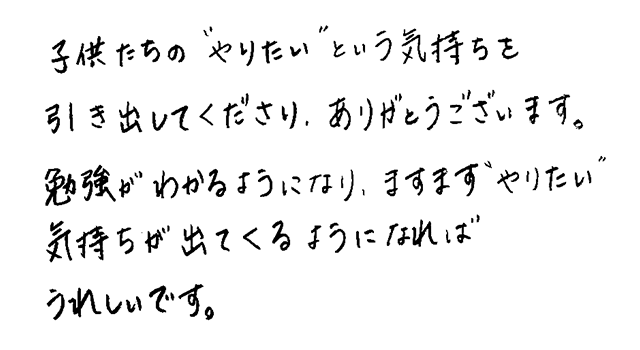 子供たちの"やりたい"という気持ちを
引き出してくださり、ありがとうございます。
勉強がわかるようになり、ますます"やりたい"
気持ちが出てくるようになれば
うれしいです。